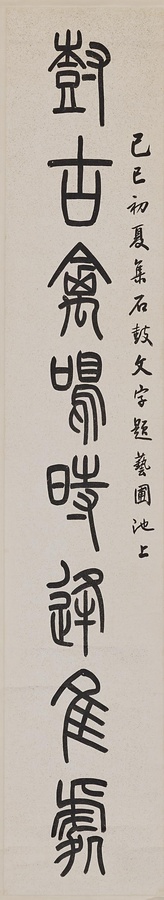 己巳初夏集石鼓文字題藝圃池上
尌古禽鳴時逢隹處